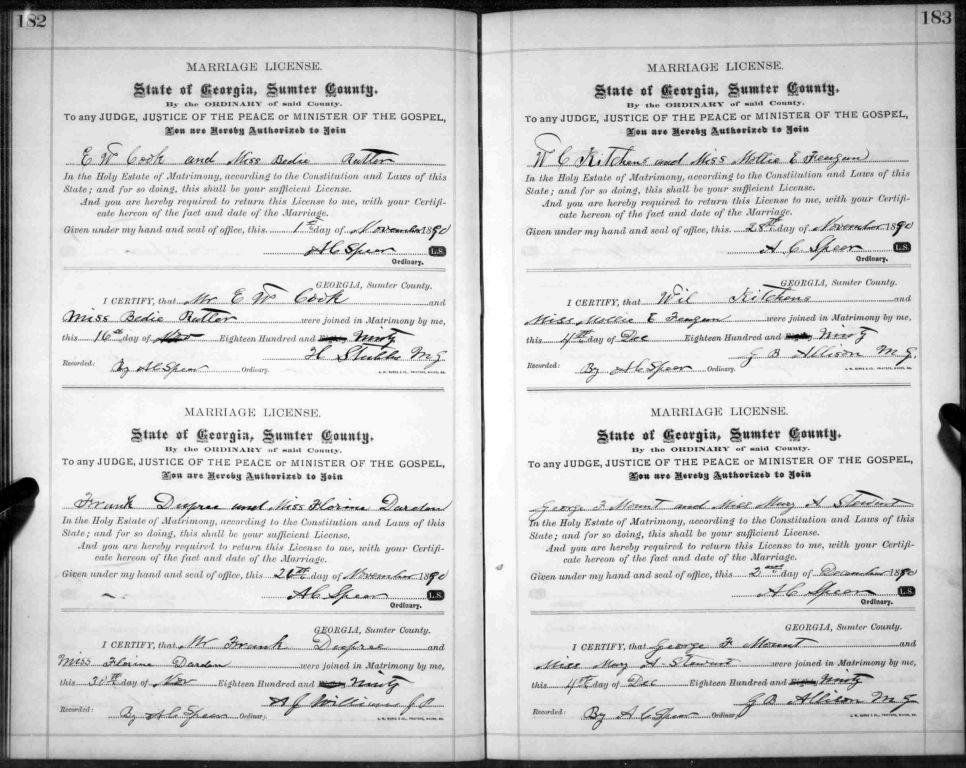 182
MARRIAGE LICENSE.
State of Georgia, Sumter County.
By the ORDINARY of said County.
To any JUDGE, JUSTICE OF THE PEACE or MINISTER OF THE GOSPEL,
You are Hereby Authorized to Join
E W Cook and Miss Bedie Rutler
In the Holy Estate of Matrimony, according to the Constitution and Laws of this
State; and for so doing, this shall be your sufficient License.
And you are hereby required to return this License to me, with your Certifi-
cate hereon of the fact and date of the Marriage.
Given under my hand and seal of office, this 1st day of November 1890
A C Speer L.S.
Ordinary.
GEORGIA, Sumter County.
I CERTIFY, that Mr E W Cook and
Miss Bedie Rutler were joined in Matrimony by me,
this 16th day of Nov Eighteen Hundred and Eighty Ninety
H Stubbs M G
Recorded: By A C Speer Ordinary.
MARRIAGE LICENSE.
State of Georgia, Sumter County.
By the ORDINARY of said County.
To any JUDGE, JUSTICE OF THE PEACE or MINISTER OF THE GOSPEL,
You are Hereby Authorized to Join
Frank Dupree and Miss Florine Darden
In the Holy Estate of Matrimony, according to the Constitution and Laws of this
State; and for so doing, this shall be your sufficient License.
And you are hereby required to return this License to me, with your Certifi-
cate hereon of the fact and date of the Marriage.
Given under my hand and seal of office, this 26th day of November 1890
A C Speer L.S.
Ordinary.
GEORGIA, Sumter County.
I CERTIFY, that Mr Frank Dupree and
Miss Florine Darden were joined in Matrimony by me,
this 30th day of Nov Eighteen Hundred and Eighty Ninety
A J Williams J P
Recorded: By A C Speer Ordinary.
183
MARRIAGE LICENSE.
State of Georgia, Sumter County.
By the ORDINARY of said County.
To any JUDGE, JUSTICE OF THE PEACE or MINISTER OF THE GOSPEL,
You are Hereby Authorized to Join
W C Kitchens and Miss Mollie E Feagun
In the Holy Estate of Matrimony, according to the Constitution and Laws of this
State; and for so doing, this shall be your sufficient License.
And you are hereby required to return this License to me, with your Certifi-
cate hereon of the fact and date of the Marriage.
Given under my hand and seal of office, this 28th day of November 1890
A. C. Speer L.S.
Ordinary.
GEORGIA, Sumter County.
I CERTIFY, that Wil Kitchens and
Miss Mollie E Feagun were joined in Matrimony by me,
this 4th day of Dec Eighteen Hundred and Eighty Ninety
G B Allison M. G.
Recorded: By A C Speer Ordinary.
MARRIAGE LICENSE.
State of Georgia, Sumter County.
By the ORDINARY of said County.
To any JUDGE, JUSTICE OF THE PEACE or MINISTER OF THE GOSPEL,
You are Hereby Authorized to Join
George F Mount and Miss Mary A Stewart
In the Holy Estate of Matrimony, according to the Constitution and Laws of this
State; and for so doing, this shall be your sufficient License.
And you are hereby required to return this License to me, with your Certifi-
cate hereon of the fact and date of the Marriage.
Given under my hand and seal of office, this 2nd day of December 1890
A C Speer L.S.
Ordinary.
GEORGIA, Sumter County.
I CERTIFY, that George F Mount and
Miss Mary A Stewart were joined in Matrimony by me,
this 4th day of Dec Eighteen Hundred and Eighty Ninety
G B Allison M G
Recorded: By A C Speer Ordinary.